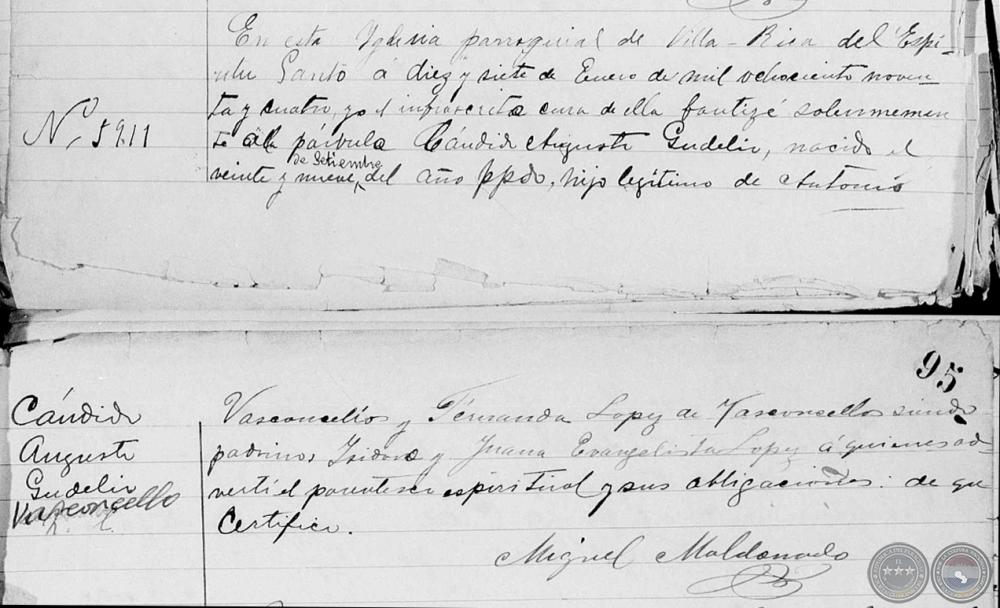 En esta Yglesia parroquial de Villa-Rica del Espí-
ritu Santo á diez y siete de Enero de mil ochociento noven-
ta y cuatro, yo el infrascrito cura de ella bautizé solemnemen-
Nº 5911
te al párbulo Cándido Augusto Gudelio, nacido el
de Setiembre
veinte y nueve del año ppdo, hijo legítimo de Antonio
95
Cándido
Augusto
Gudelio
Vasconcello
Vasconcellos y Fernanda Lopez de Vasconcellos siendo
padrinos Isidoro y Juana Evangelista Lopez á quienes ad-
vertí el parentesco espiritual y sus obligaciones: de que
Certifico.
Miguel Maldonado